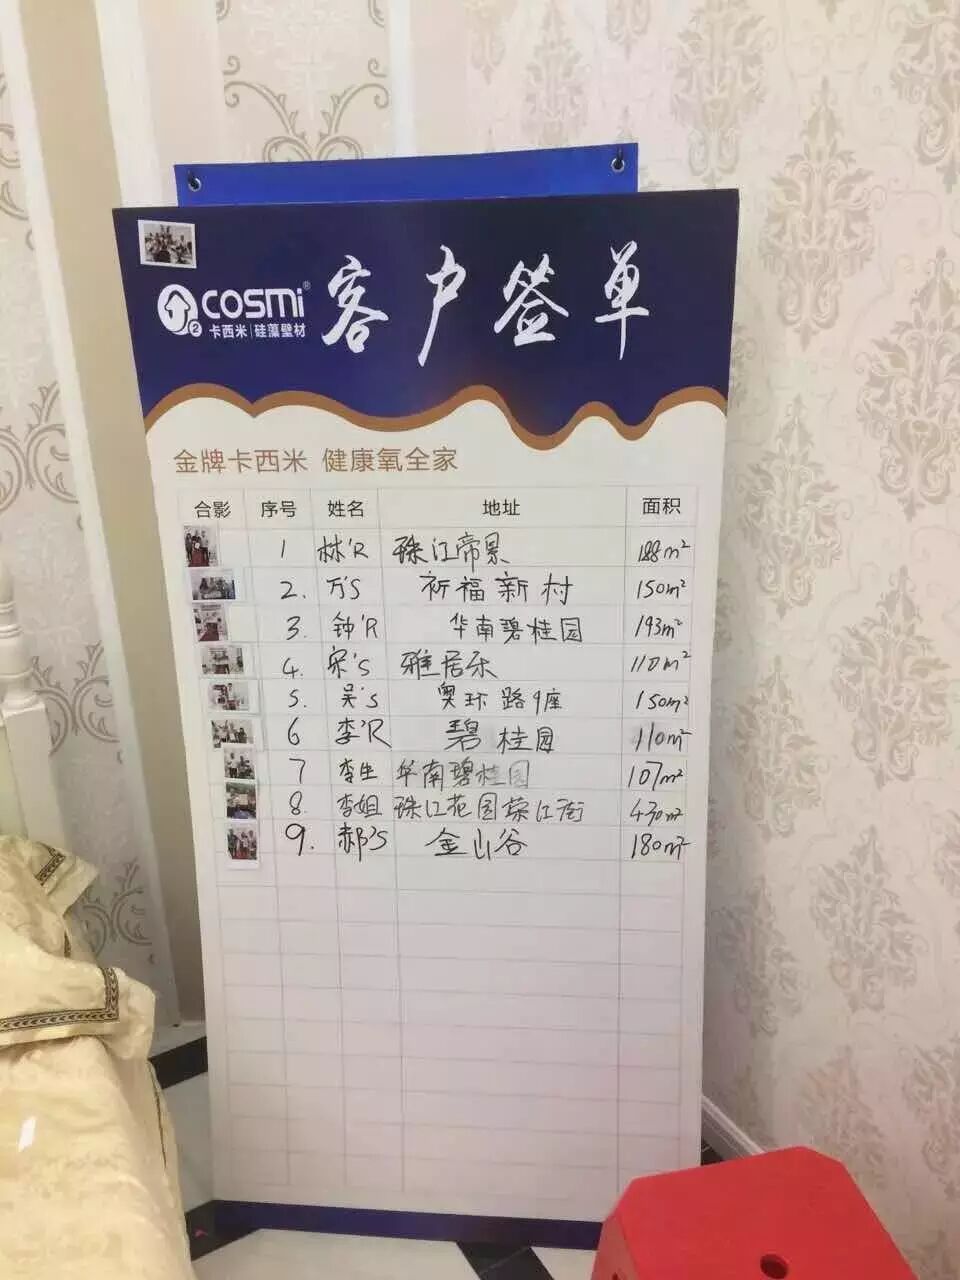 COSMi® 客户签单
2 卡西米 硅藻壁材
金牌卡西米 健康氧全家
合影 序号 姓名 地址 面积
1 林'R 珠江帝景 188m²
2. 万'S 祈福新村 150m²
3. 钟'R 华南碧桂园 193m²
4. 宋'S 雅居乐 110m²
5. 吴's 奥环路9座 150m²
6 李'R 碧桂园 110m²
7 李生 华南碧桂园 107m²
8. 李姐 珠江花园荣江街 430m²
9. 郝'S 金山谷 180m²